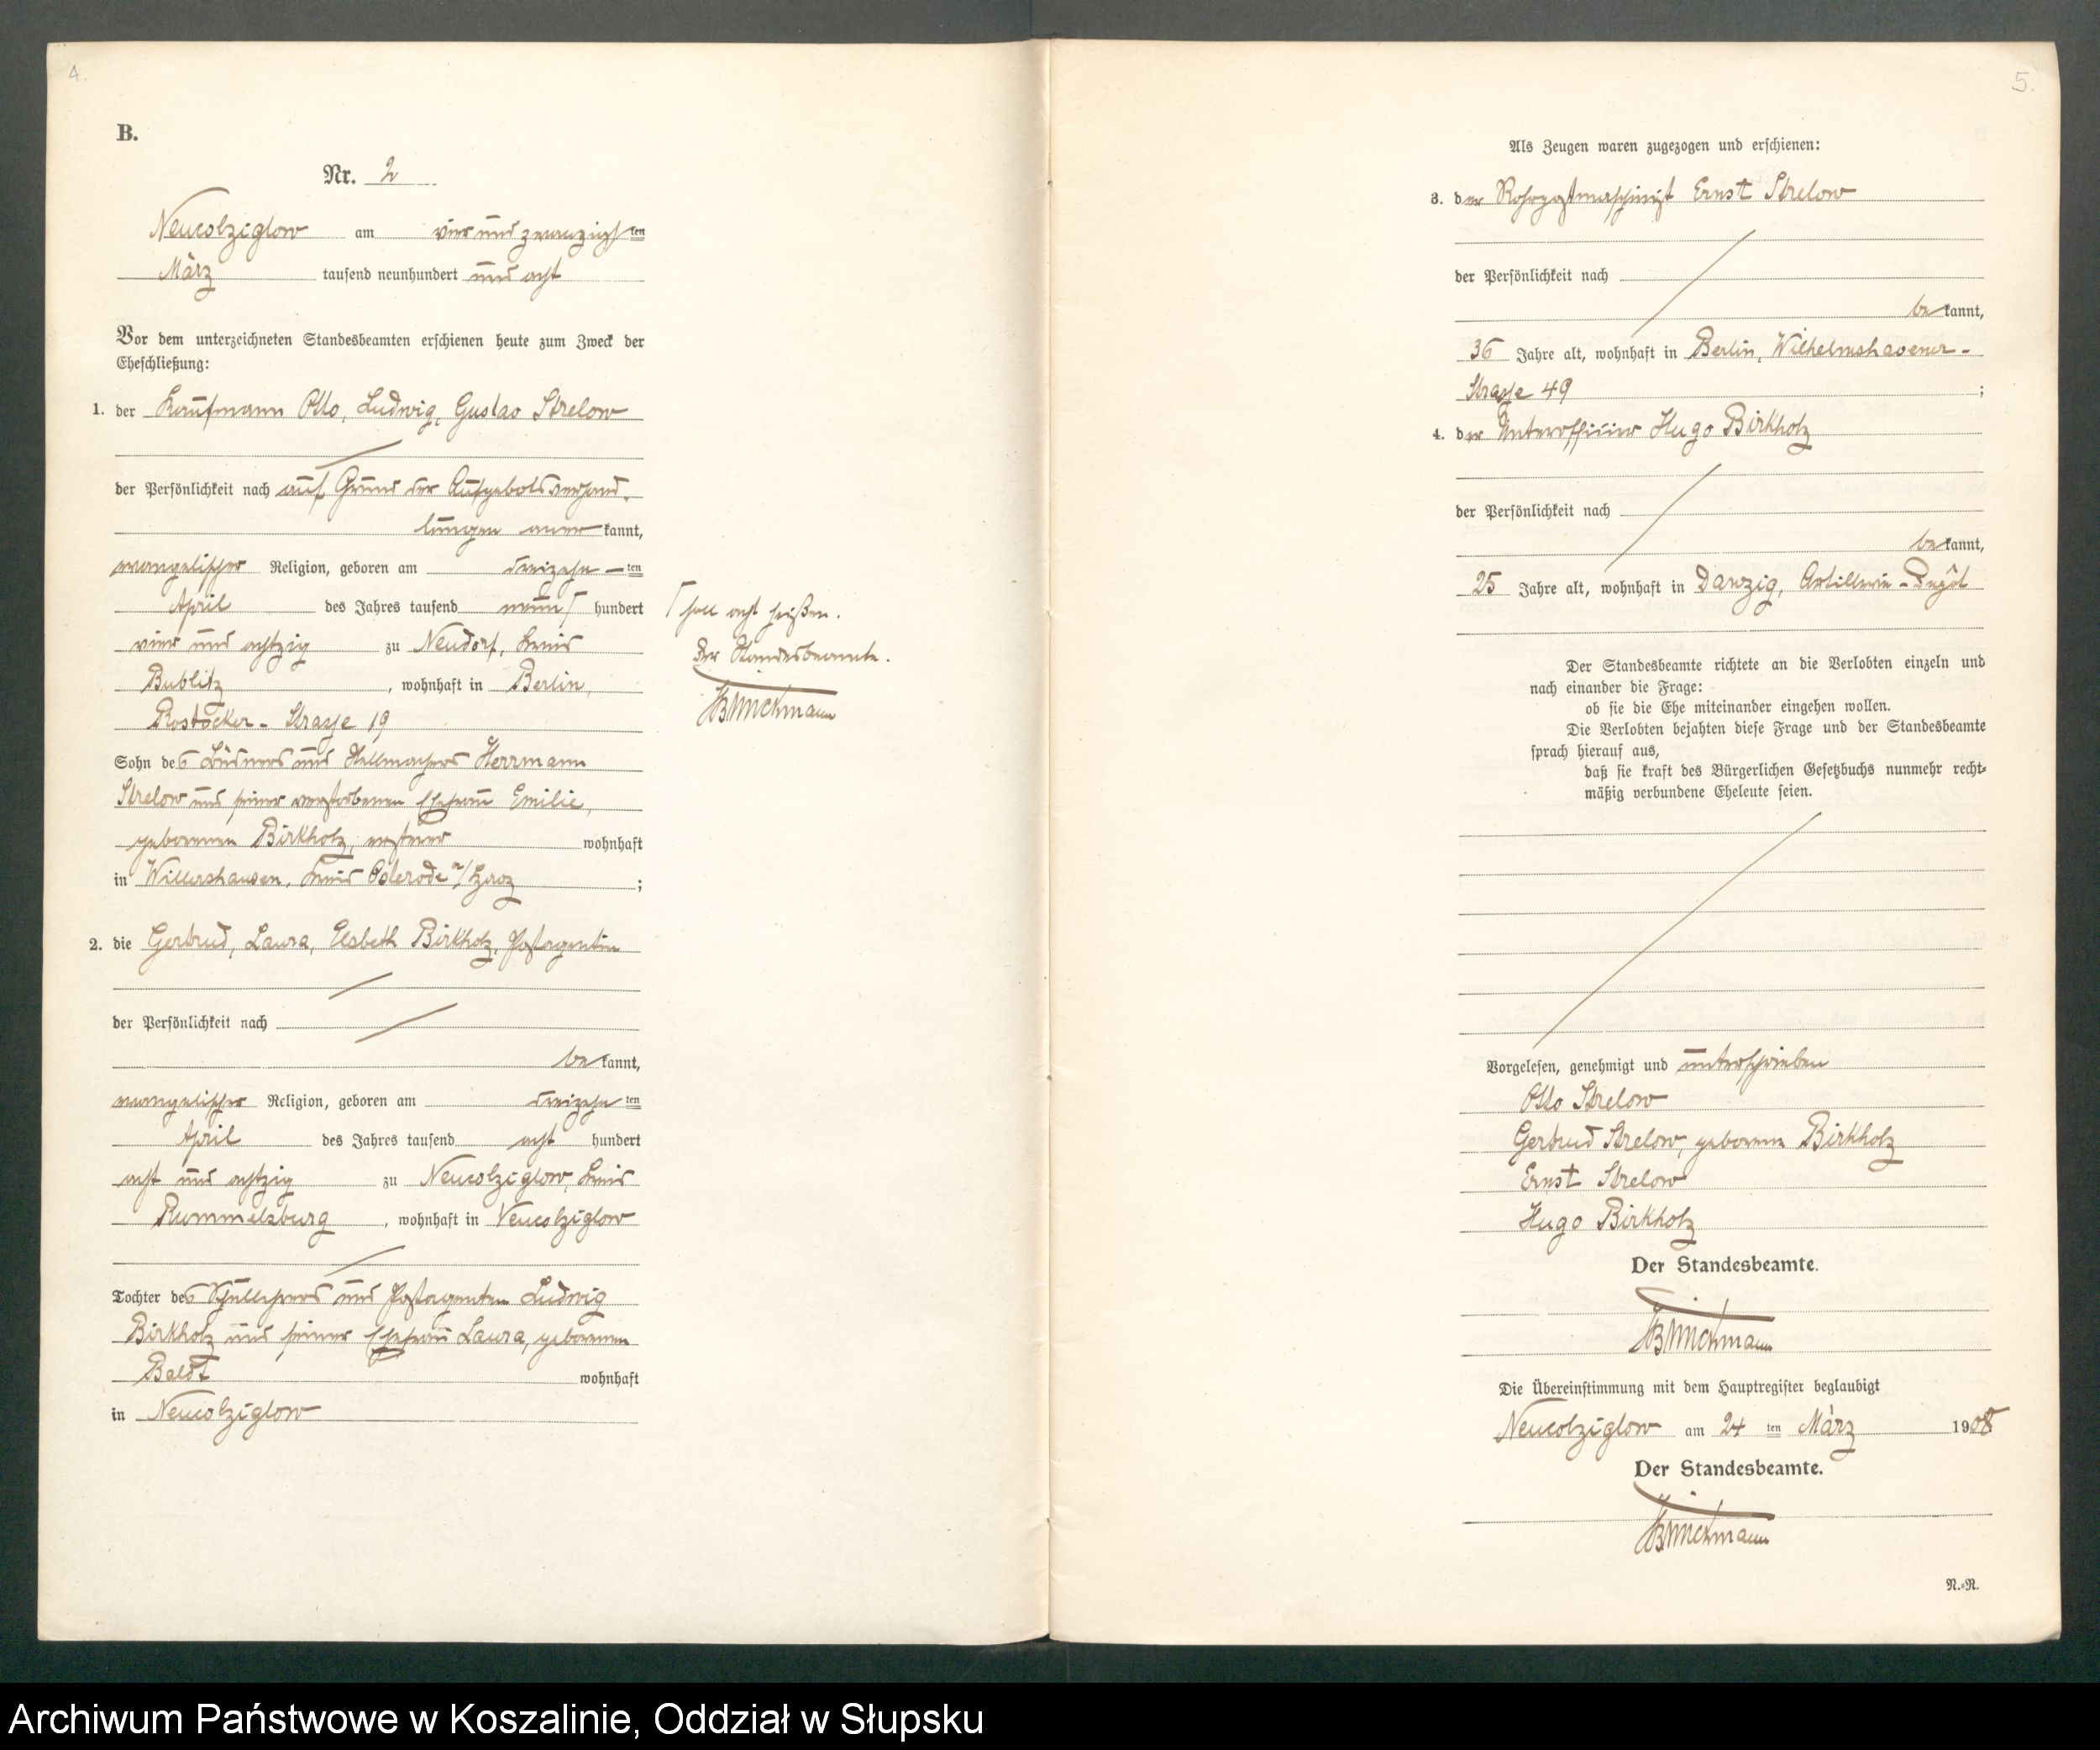 4.
B.
Nr. 2
Neucolziglow am vier und zwanzigsten
März tausend neunhundert und acht
Vor dem unterzeichneten Standesbeamten erschienen heute zum Zweck der
Eheschließung:
1. der Kaufmann Otto, Ludwig, Gustav Strelow
der Persönlichkeit nach auf Grund der Aufgebotsverhand-
lungen anerkannt,
evangelischer Religion, geboren am dreizehnten
April des Jahres tausend neun ⌈ hundert
vier und achtzig zu Neudorf, Kreis
Bublitz, wohnhaft in Berlin,
Rostocker-Strasse 19
Sohn des Büdners und Stellmachers Herrmann
Strelow und seiner verstorbenen Ehefrau Emilie,
geborenen Birkholz, ersterer wohnhaft
in Willershausen, Kreis Osterode a/Harz;
⌈ soll acht heißen.
Der Standesbeamte.
Brinckmann
2. die Gertrud, Laura, Elsbeth Birkholz, Postagentin
der Persönlichkeit nach
bekannt,
evangelischer Religion, geboren am dreizehnten
April des Jahres tausend acht hundert
acht und achtzig zu Neucolziglow, Kreis
Rummelsburg, wohnhaft in Neucolziglow
Tochter des Schullehrers und Postagenten Ludwig
Birkholz und seiner Ehefrau Laura, geborenen
Baldt wohnhaft
in Neucolziglow
5.
Als Zeugen waren zugezogen und erschienen:
3. der Rohrpostmaschinist Ernst Strelow
der Persönlichkeit nach
bekannt,
36 Jahre alt, wohnhaft in Berlin, Wilhelmshavener-
Strasse 49;
4. der Unteroffizier Hugo Birkholz
der Persönlichkeit nach
bekannt,
25 Jahre alt, wohnhaft in Danzig, Artillerie-Depôt
Der Standesbeamte richtete an die Verlobten einzeln und
nach einander die Frage:
ob sie die Ehe miteinander eingehen wollen.
Die Verlobten bejahten diese Frage und der Standesbeamte
sprach hierauf aus,
daß sie kraft des Bürgerlichen Gesetzbuchs nunmehr recht-
mäßig verbundene Eheleute seien.
Vorgelesen, genehmigt und unterschrieben
Otto Strelow
Gertrud Strelow, geborene Birkholz
Ernst Strelow
Hugo Birkholz
Der Standesbeamte.
Brinckmann
Die Übereinstimmung mit dem Hauptregister beglaubigt
Neucolziglow am 24ten März 1908
Der Standesbeamte.
Brinckmann
N.-R.
Archiwum Państwowe w Koszalinie, Oddział w Słupsku